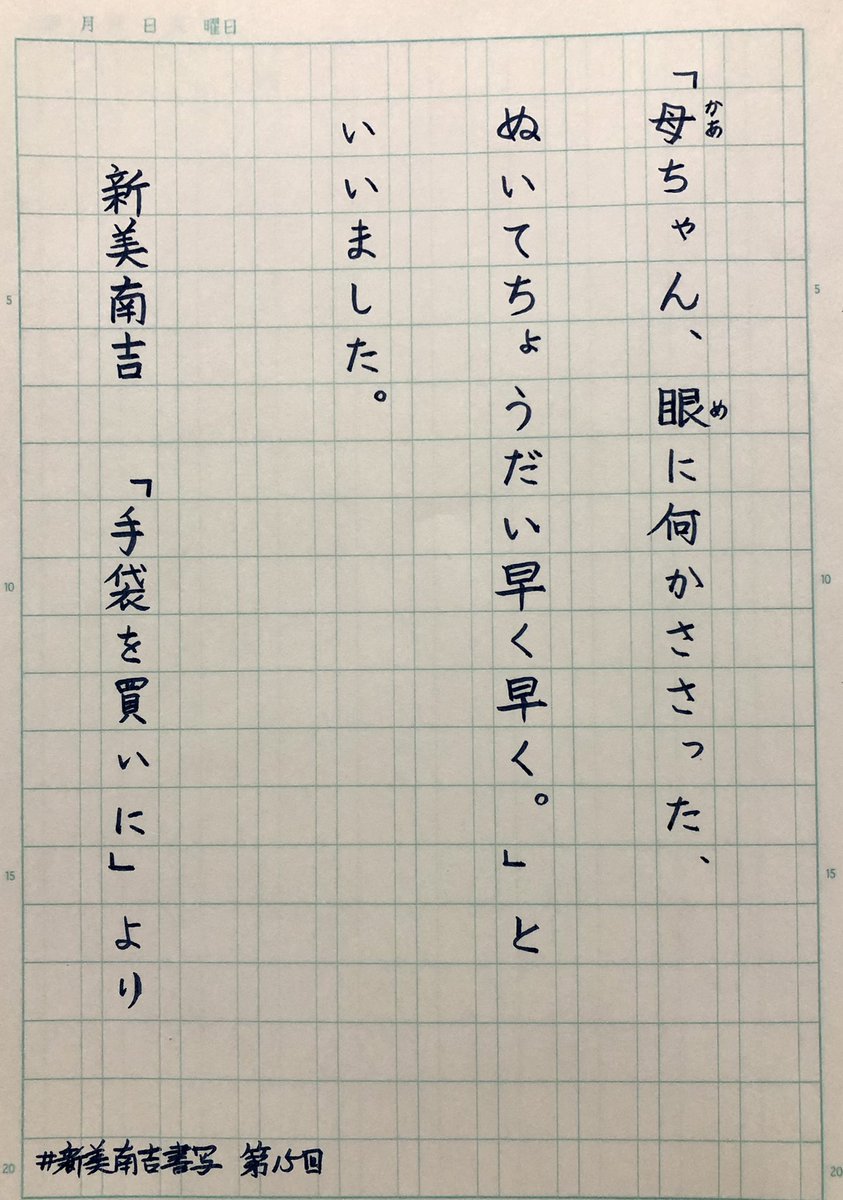 月 日 曜日
「母ちゃん、眼に何かささった、
かあ
め
ぬいてちょうだい早く早く。」と
いいました。
新美南吉 「手袋を買いに」より
#新美南吉書写 第15回
5
10
15
20
5
10
15
20